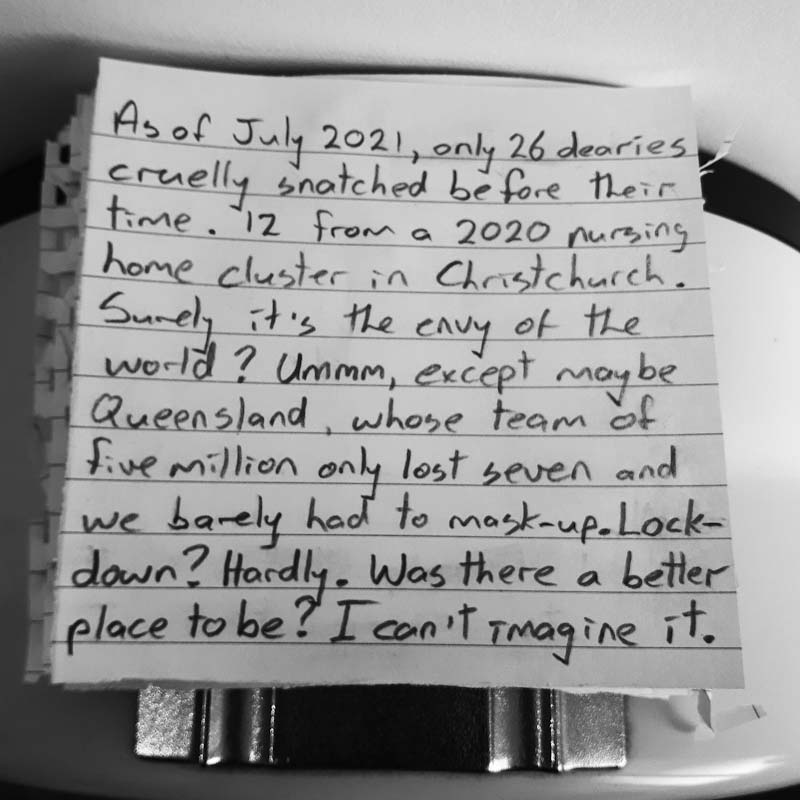 As of July 2021, only 26 dearies
cruelly snatched before their
time. 12 from a 2020 nursing
home cluster in Christchurch.
Surely it's the envy of the
world? Ummm, except maybe
Queensland, whose team of
five million only lost seven and
we barely had to mask-up. Lock-
down? Hardly. Was there a better
place to be? I can't imagine it.